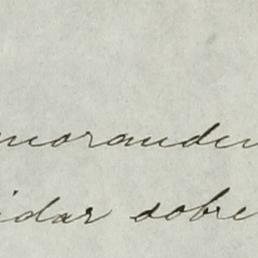 morandu
idar sobre